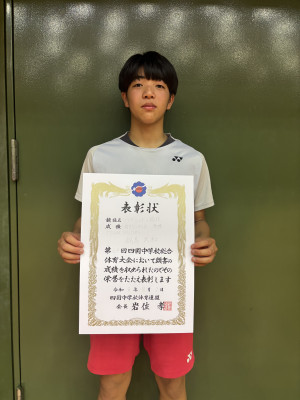 YONEX
表彰状
種目名
成績
第 回四国中学校総合
体育大会において頭書の
成績を収められたのでその
栄誉をたたえ表彰します
令和 年 月 日
四国中学校体育連盟
会長 岩佐 孝